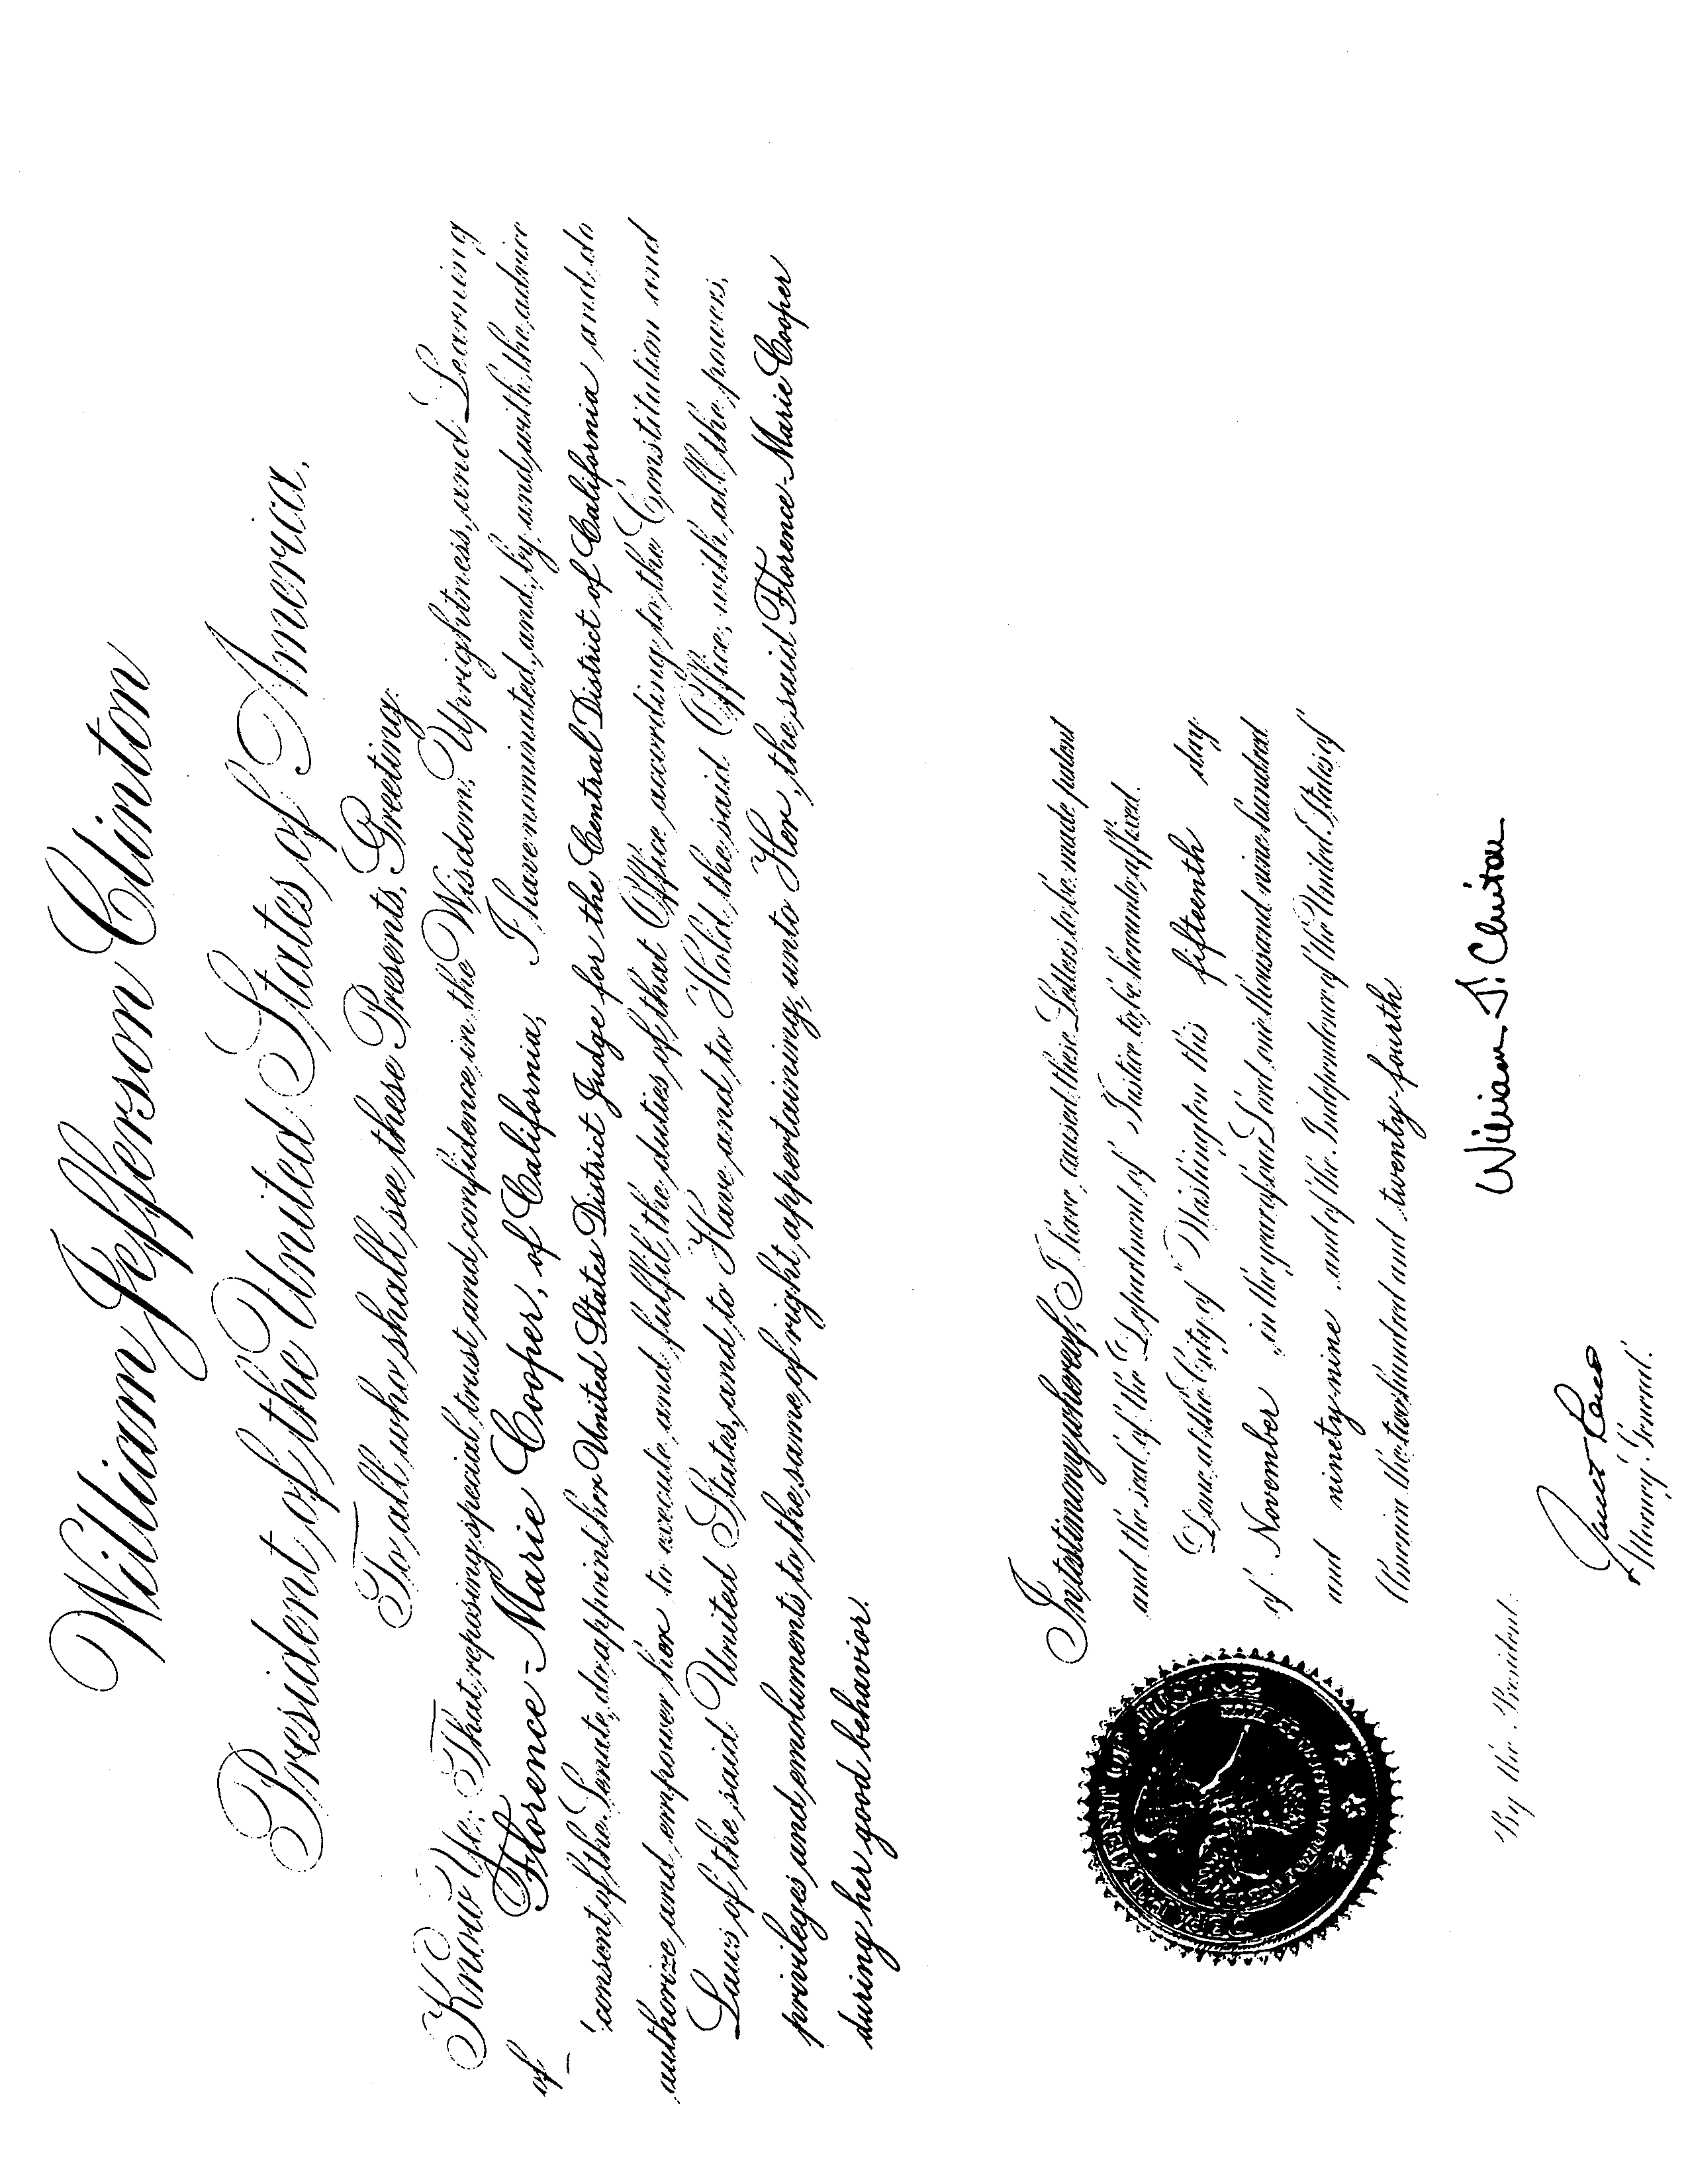 William Jefferson Clinton
President of the United States of America,
To all who shall see these Presents, Greeting:
Know Ye; That, reposing special trust and confidence in the Wisdom, Uprightness, and Learning
of Florence-Marie Cooper, of California, I have nominated, and, by and with the advice
and consent of the Senate, do appoint her United States District Judge for the Central District of California and do
authorize and empower her to execute and fulfil the duties of that Office according to the Constitution and
Laws of the said United States, and to Have and to Hold the said Office, with all the powers,
privileges and emoluments to the same of right appertaining, unto Her, the said Florence-Marie Cooper
during her good behavior.
In testimony whereof, I have caused these Letters to be made patent
and the seal of the Department of Justice to be hereunto affixed.
Done at the City of Washington this fifteenth day
of November in the year of our Lord one thousand nine hundred
and ninety-nine and of the Independence of the United States of
America the two hundred and twenty-fourth.
DEPARTMENT OF JUSTICE
William J. Clinton
By the President:
Janet Reno
Attorney General.